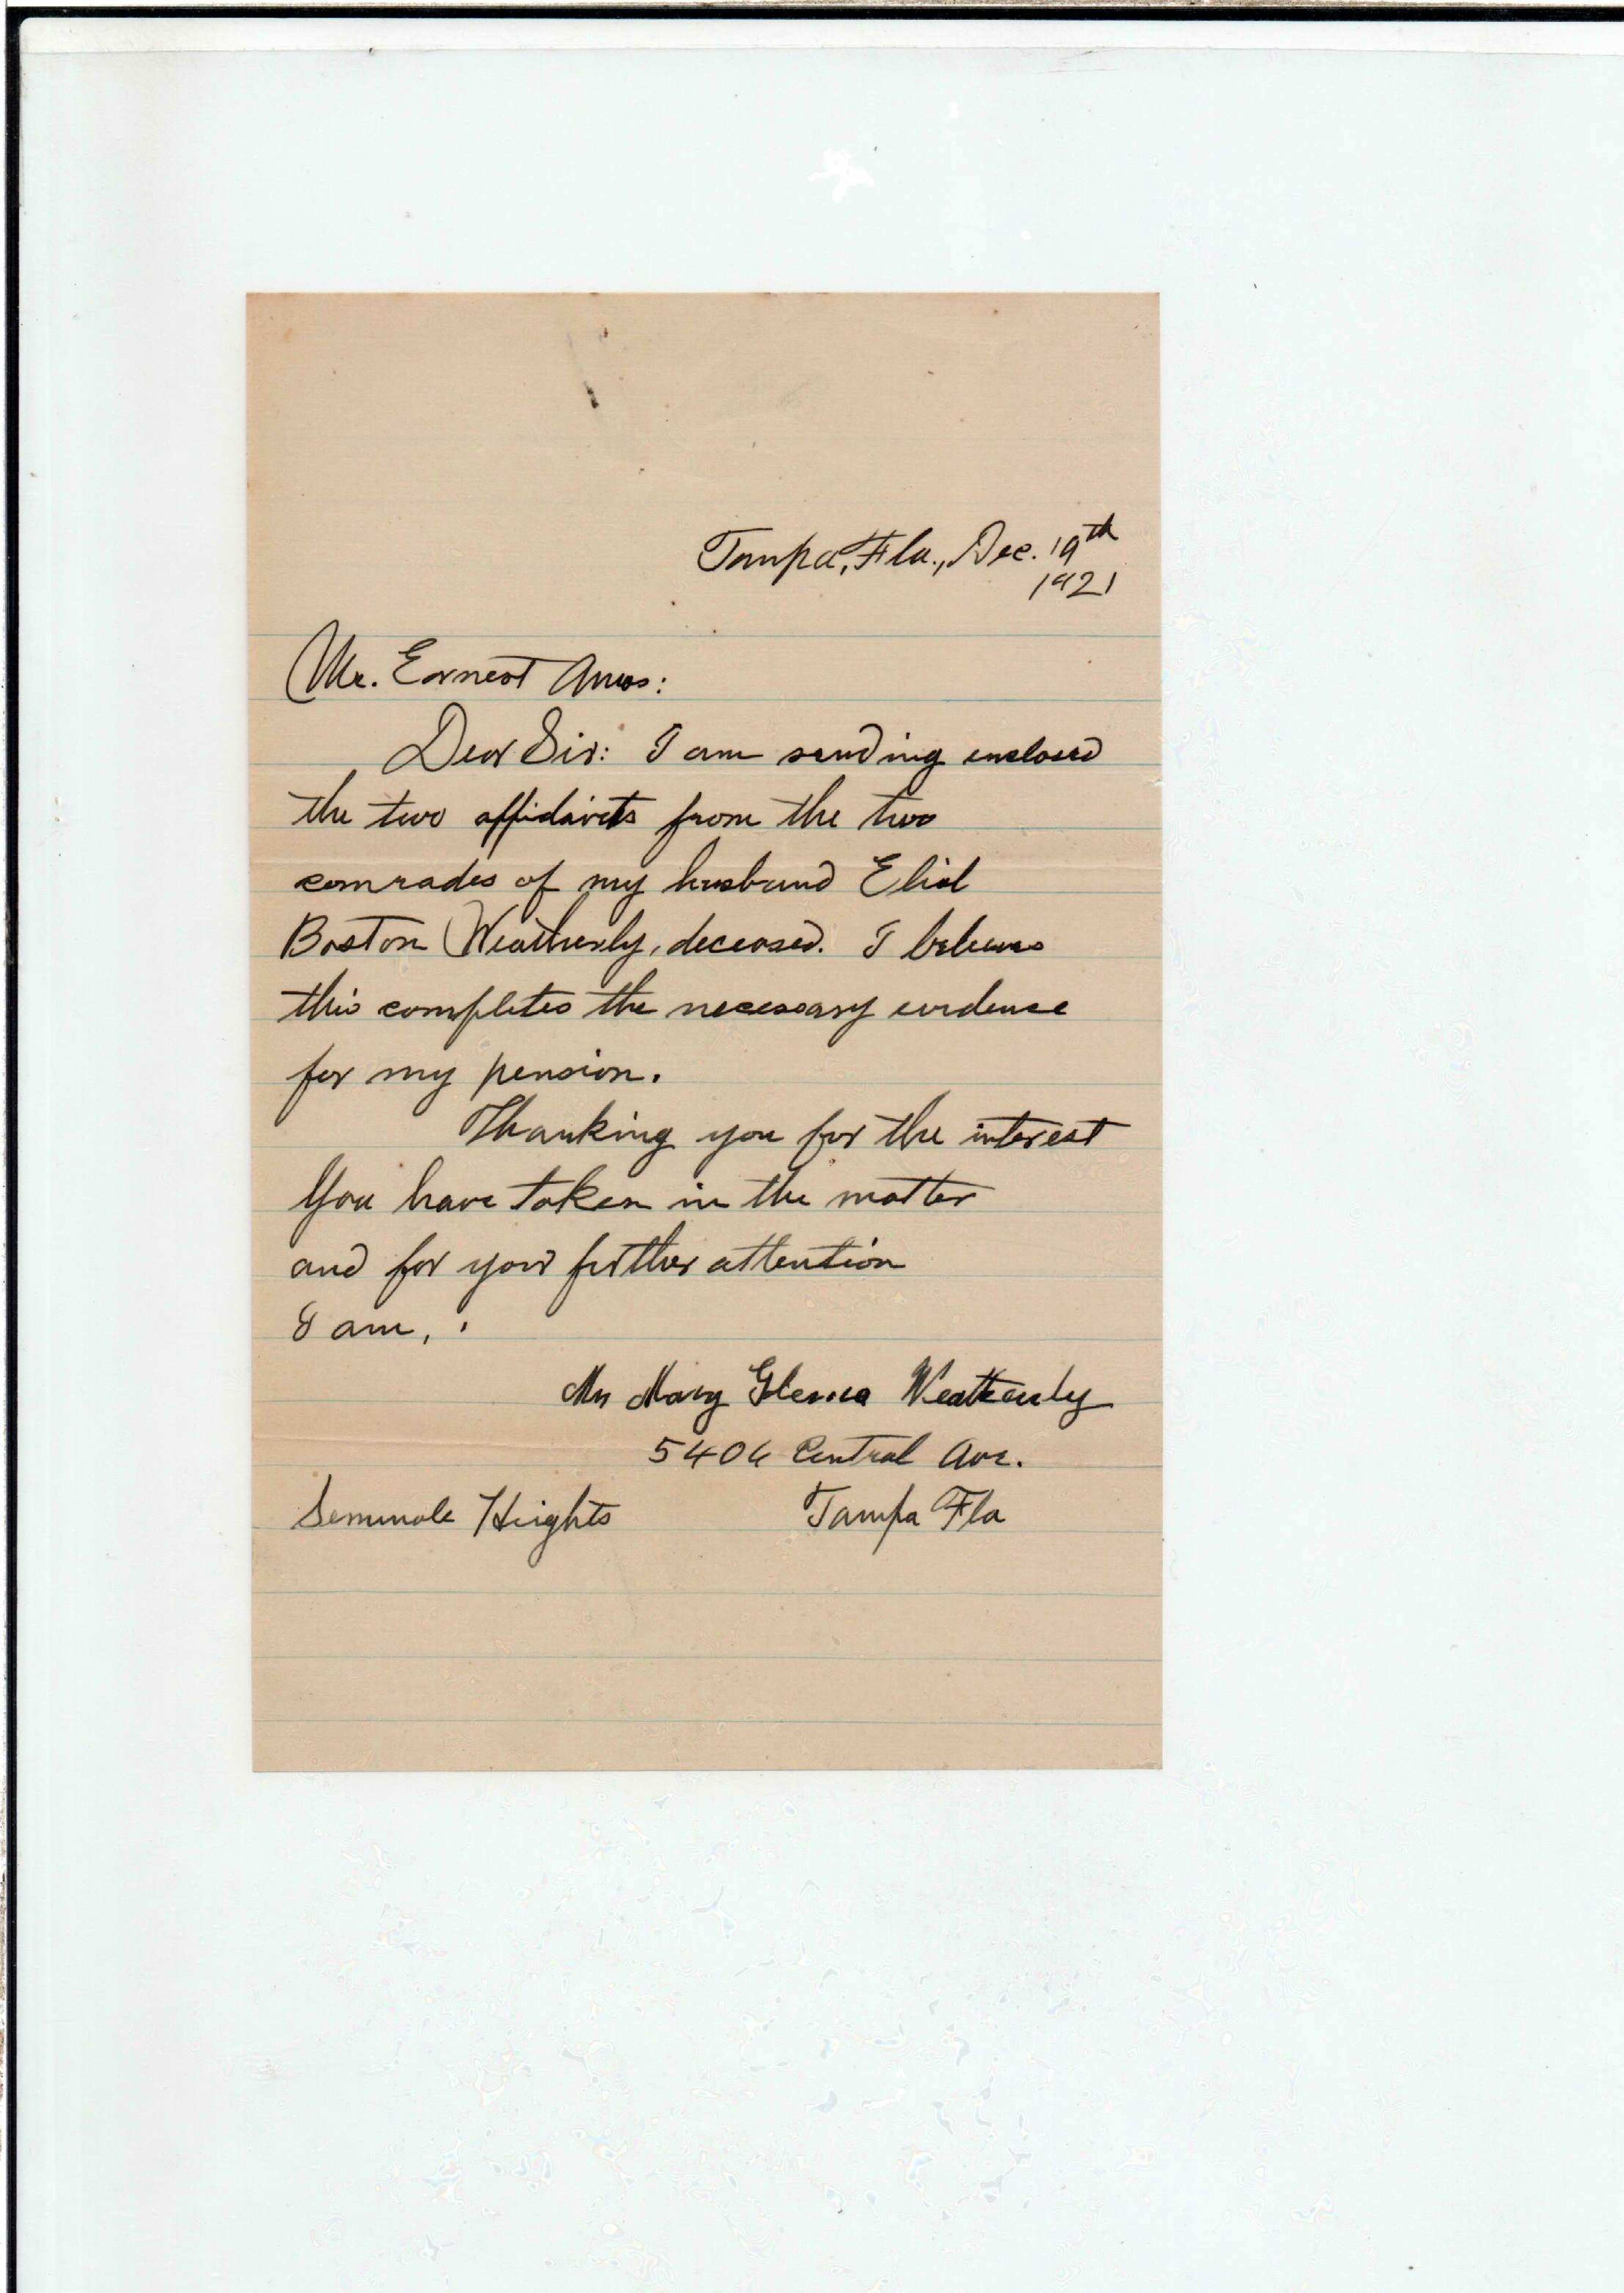 Tampa, Fla., Dec. 19th
1921
Mr. Ernest Amos:
Dear Sir: I am sending enclosed
the two affidavits from the two
comrades of my husband Eliel
Boston Weatherly, deceased. I believe
this completes the necessary evidence
for my pension.
Thanking you for the interest
You have taken in the matter
and for your further attention
I am,
Mrs Mary Weatherly
5406 Central Ave.
Seminole Heights Tampa Fla